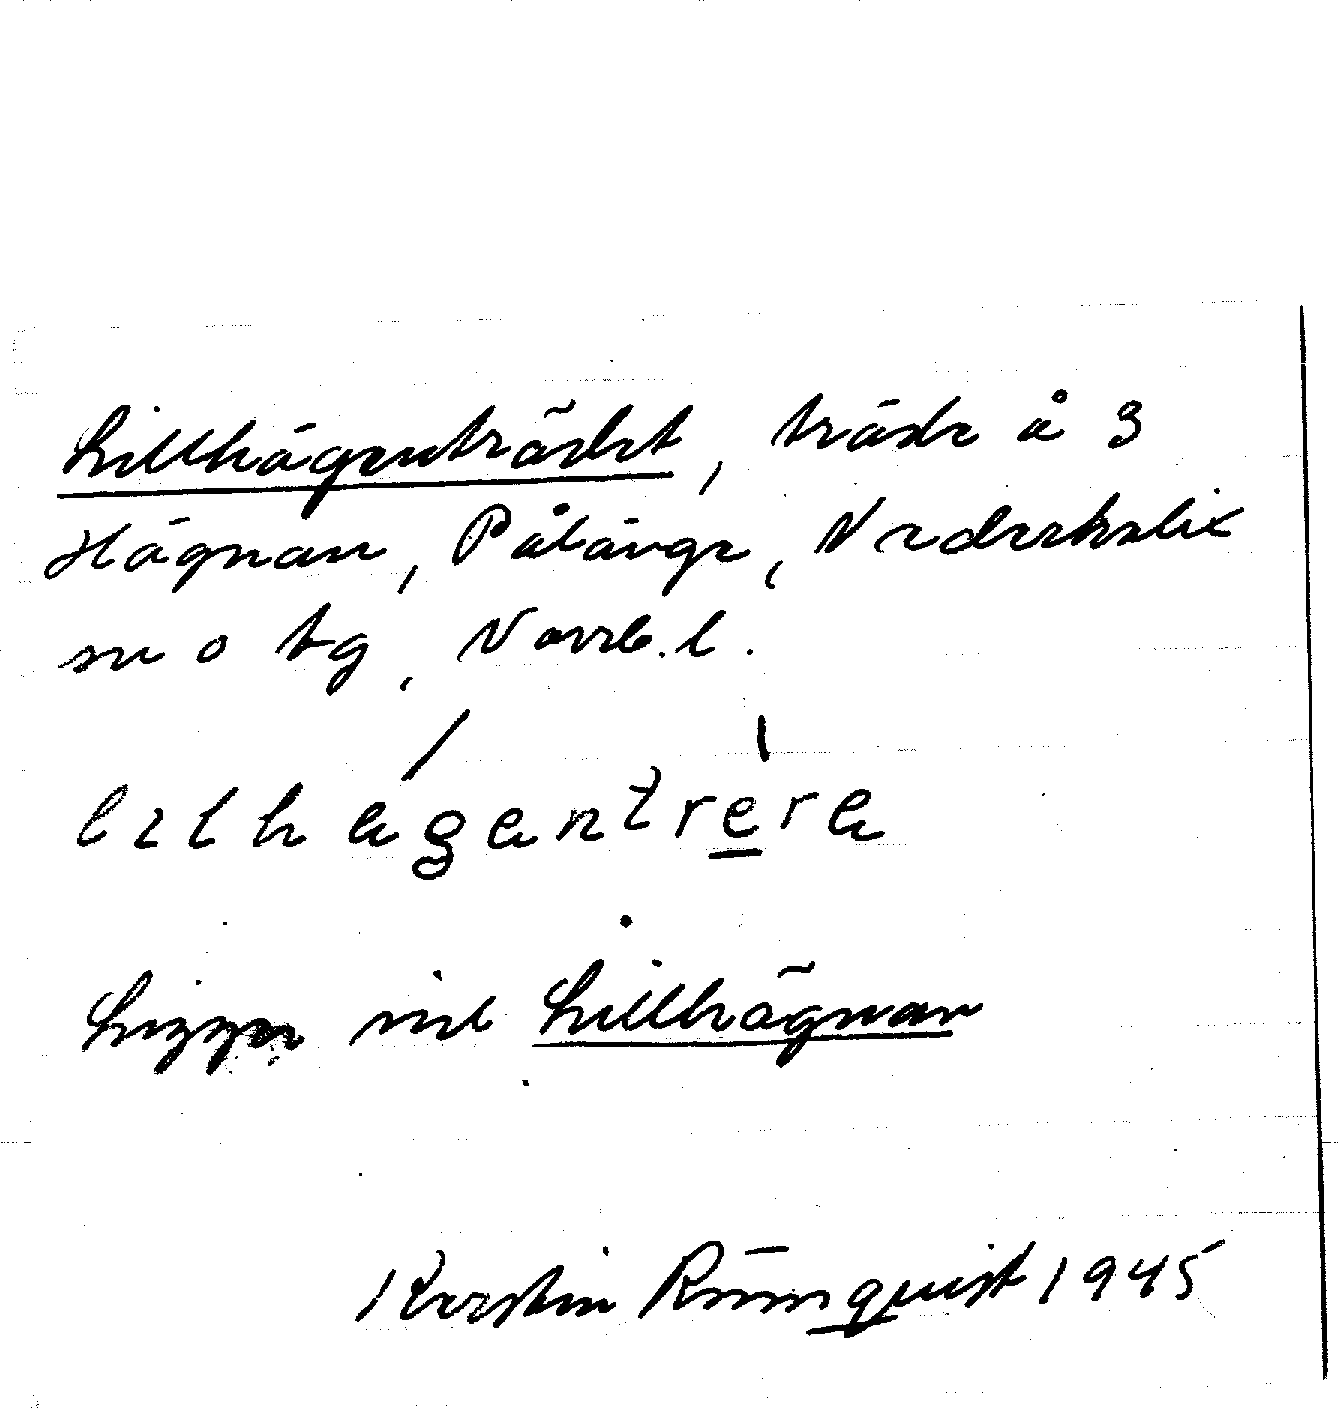 Lillhägenträdet, träde å 3
Hägnan, Pålänge, Nederkalix
sn o tg, Norrb.l.
lılhägentrere
Ligger vid Lillhägnan
Kerstin Rönnquist 1945